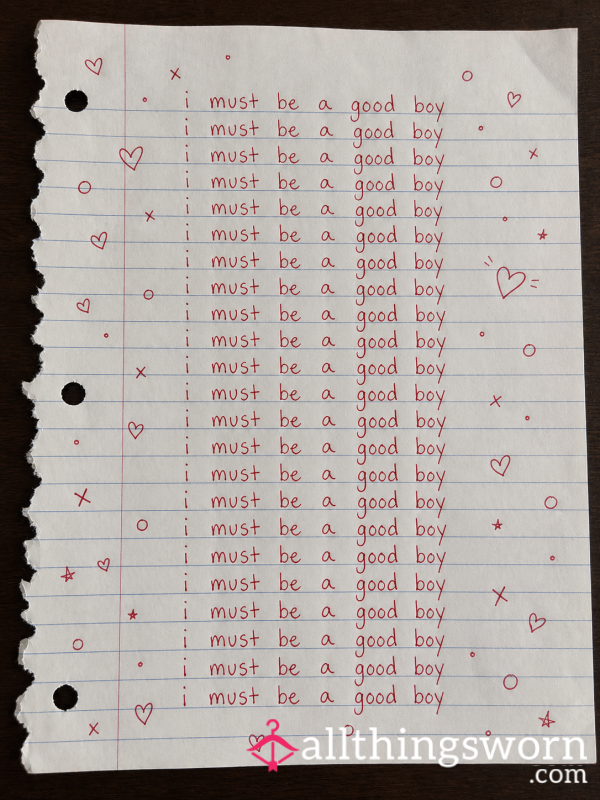 i must be a good boy
i must be a good boy
i must be a good boy
i must be a good boy
i must be a good boy
i must be a good boy
i must be a good boy
i must be a good boy
i must be a good boy
i must be a good boy
i must be a good boy
i must be a good boy
i must be a good boy
i must be a good boy
i must be a good boy
i must be a good boy
i must be a good boy
i must be a good boy
i must be a good boy
i must be a good boy
i must be a good boy
i must be a good boy
i must be a good boy
allthingsworn
.com